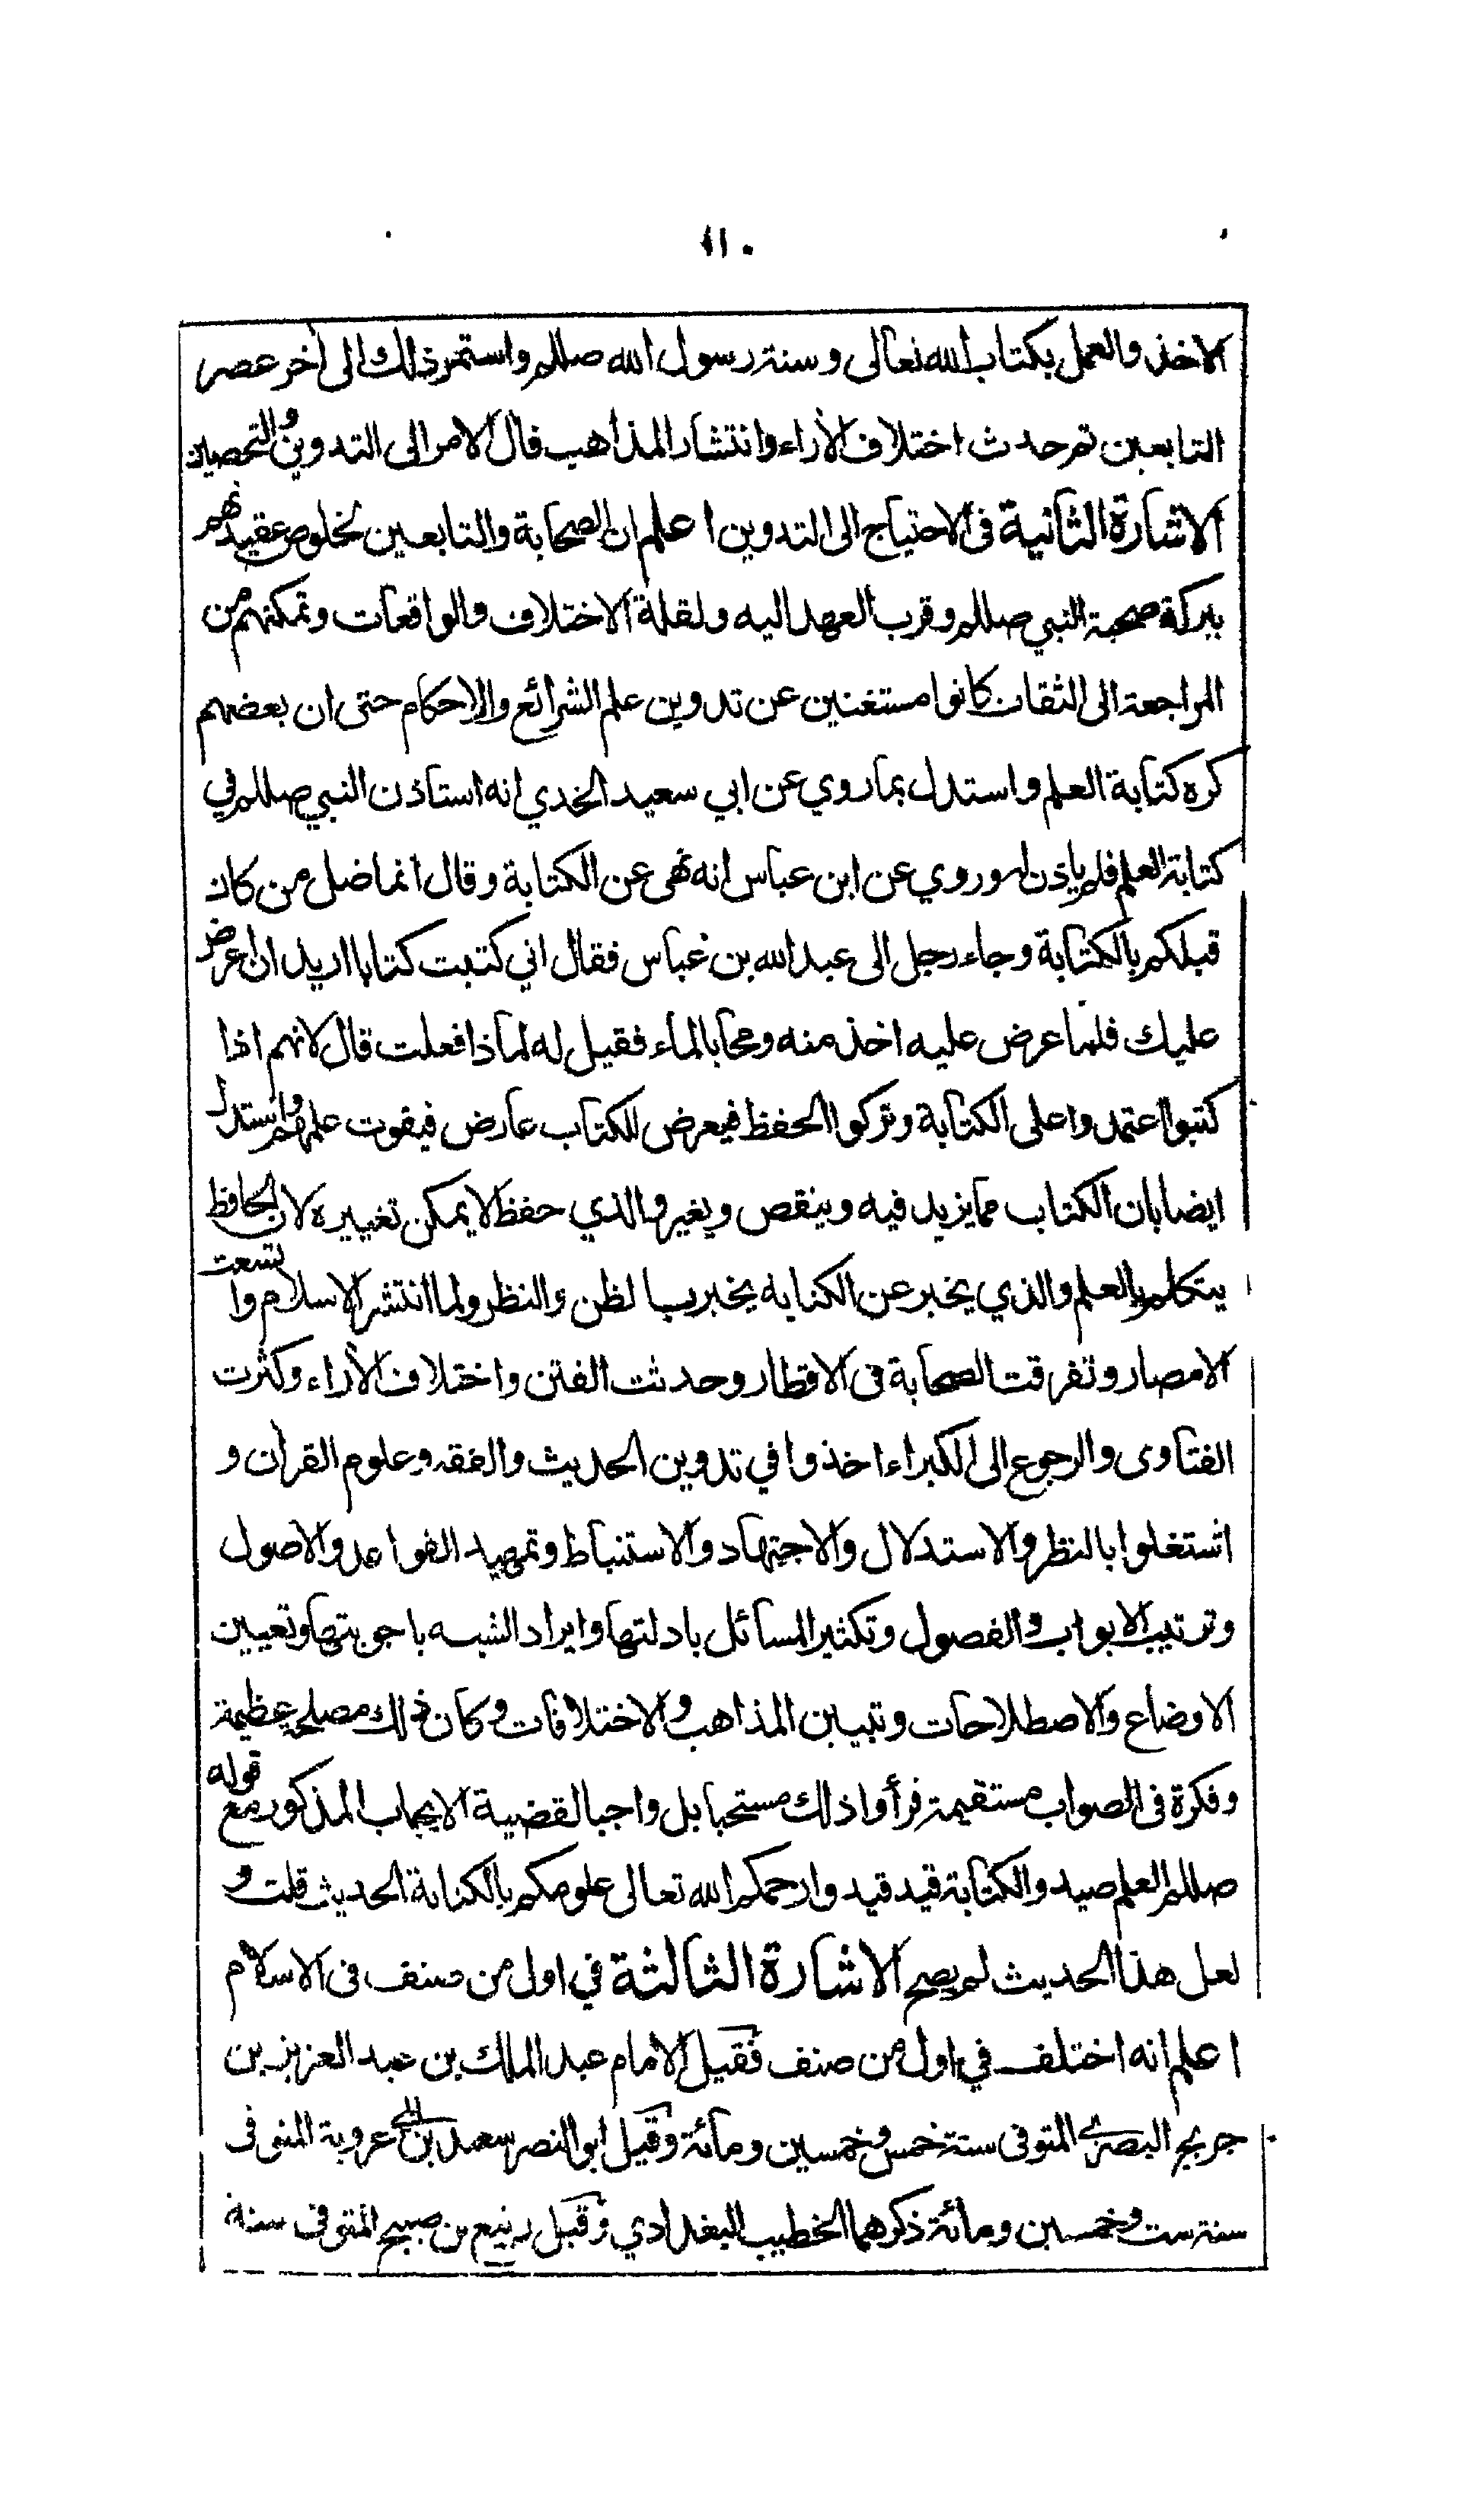 ١١٠
الاخذ والعمل بكتاب الله تعالى وسنة رسول الله صللم واستمر ذلك الى أخر عصر
التابعين ثم حدث اختلاف الأراء وانتشار المذاهب فال الامر الى التدوين والتحصين
الاشارة الثانية فى الاحتياج الى التدوين اعلم ان الصحابة والتابعين لخلوص عقيدتهم
ببركة صحبة النبي صللم وقرب العهد اليه ولقلة الاختلاف والواقعات وتمكنهم من
المراجعة الى الثقات كانوا مستغنين عن تدوين علم الشرائع والاحكام حتى ان بعضهم
كره كتابة العلم واستدل بما روي عن ابي سعيد الخدي انه استاذن النبي صللم في
كتابة العلم فلم ياذن له وروي عن ابن عباس انه نهى عن الكتابة وقال انما ضل من كان
قبلكم بالكتابة وجاء رجل الى عبد الله بن عباس فقال اني كتبت كتابا اريد ان اعرض
عليك فلما عرض عليه اخذ منه ومحا بالماء فقيل له لماذا فعلت قال لانهم اذا
كتبوا اعتمدوا على الكتابة وتركوا الحفظ فيعرض للكتاب عارض فيفوت علمهم واستدل
ايضا بان الكتاب مما يزيد فيه وينقص ويغير والذي حفظ لا يمكن تغييره لان الحافظ
يتكلم بالعلم والذي يخبر عن الكتابة يخبر بالظن والنظر ولما انتشر الاسلام واتسعت
الامصار وتفرقت الصحابة فى الاقطار وحدثت الفتن واختلاف الأراء وكثرت
الفتاوى والرجوع الى الكبراء اخذوا في تدوين الحديث والفقه وعلوم القرأن و
اشتغلوا بالنظر والاستدلال والاجتهاد والاستنباط وتمهيد القواعد والاصول
وترتيب الابواب والفصول وتكثير المسائل بادلتها وايراد الشبه باجوبتها وتعيين
الاوضاع والاصطلاحات وتبيين المذاهب والاختلافات وكان ذلك مصلحة عظيمة
وفكرة فى الصواب مستقيمة فرأوا ذلك مستحبا بل واجبا لقضية الايجاب المذكور مع قوله
صللم العلم صيد والكتابة قيد قيدوا رحمكم الله تعالى علومكم بالكتابة الحديث قلت و
لعل هذا الحديث لم يصح الاشارة الثالثة في اول من صنف فى الاسلام
اعلم انه اختلف في اول من صنف فقيل الامام عبد الملك بن عبد العزيز بن
جريج البصرى المتوفى سنة خمس وخمسين ومائة وقيل ابو النصر سعيد بن ابي عروبة المتوفى
سنة ست وخمسين ومائة ذكرهما الخطيب البغدادي وقيل ربيع بن صبيح المتوفى سنة